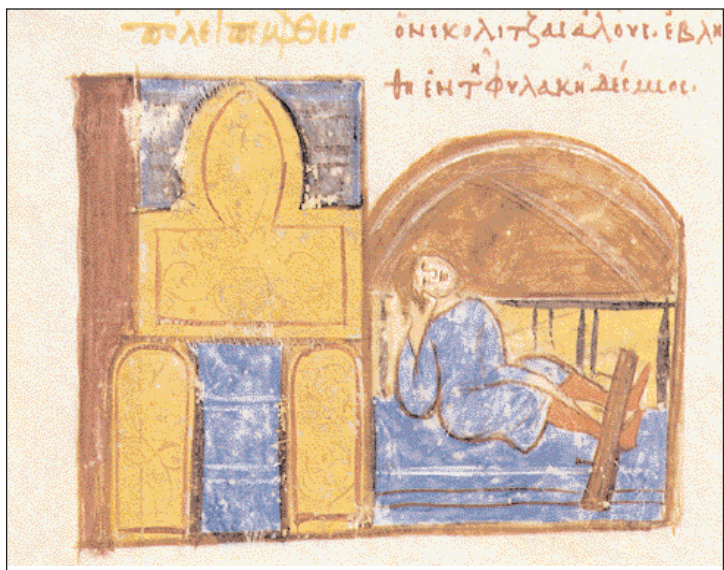 πόλει πεμφθεὶς ὁ νικολιτζᾶς ἁλοὺς. ἐβλή
θη ἐν τῇ φυλακῇ δέσμιος.